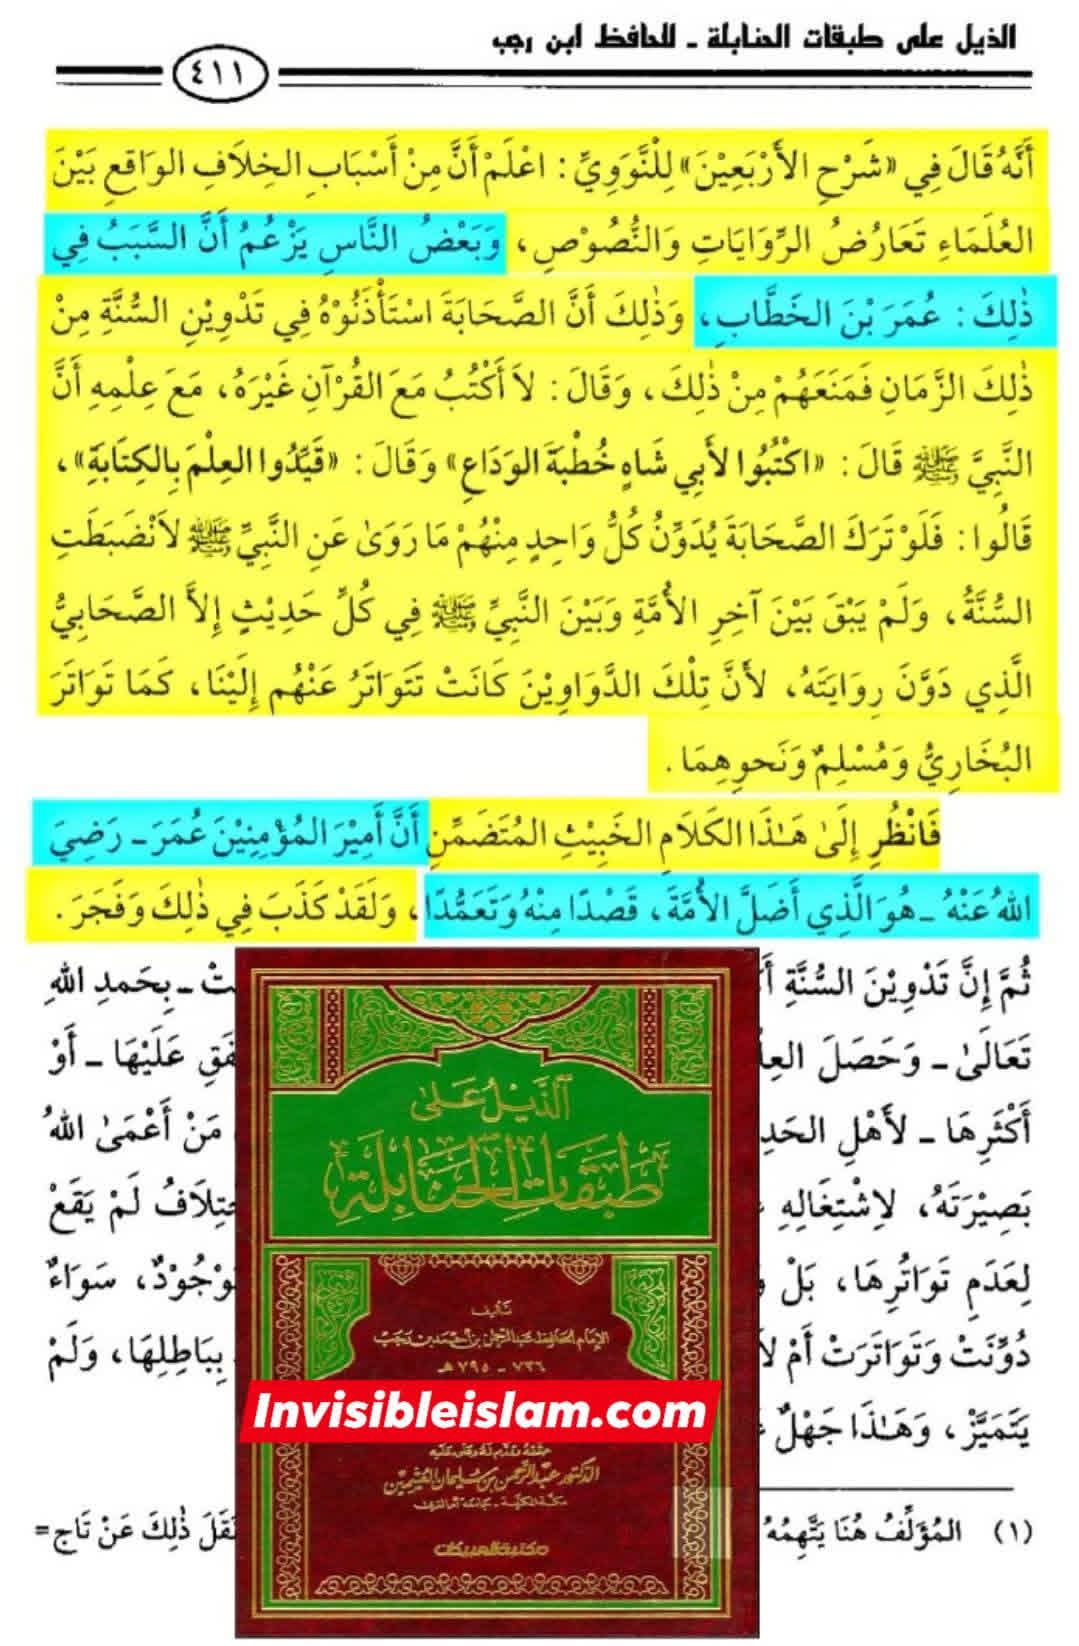 الذيل على طبقات الحنابلة ـ للحافظ ابن رجب
٤١١
أَنَّهُ قَالَ فِي «شَرْحِ الأَرْبَعِيْنَ» لِلْنَّوَوِيِّ: اعْلَمْ أَنَّ مِنْ أَسْبَابِ الخِلَافِ الوَاقِعِ بَيْنَ
العُلَمَاءِ تَعَارُضُ الرِّوَايَاتِ وَالنُّصُوْصِ، وَبَعْضُ النَّاسِ يَزْعُمُ أَنَّ السَّبَبُ فِي
ذٰلِكَ: عُمَرَ بْنَ الخَطَّابِ، وَذٰلِكَ أَنَّ الصَّحَابَةَ اسْتَأْذَنُوْهُ فِي تَدْوِيْنِ السُّنَّةِ مِنْ
ذٰلِكَ الزَّمَانِ فَمَنَعَهُمْ مِنْ ذٰلِكَ، وَقَالَ: لاَ أَكْتُبُ مَعَ القُرْآنِ غَيْرَهُ، مَعَ عِلْمِهِ أَنَّ
النَّبِيَّ ﷺ قَالَ: «اكْتُبُوا لأَبِي شَاهٍ خُطْبَةَ الوَدَاعِ» وَقَالَ: «قَيِّدُوا العِلْمَ بِالكِتَابَةِ»،
قَالُوا: فَلَوْ تَرَكَ الصَّحَابَةَ يُدَوِّنُ كُلُّ وَاحِدٍ مِنْهُمْ مَا رَوَىٰ عَنِ النَّبِيِّ ﷺ لاَنْضَبَطَتِ
السُّنَّةُ، وَلَمْ يَبْقَ بَيْنَ آخِرِ الأُمَّةِ وَبَيْنَ النَّبِيِّ ﷺ فِي كُلِّ حَدِيْثٍ إِلاَّ الصَّحَابِيُّ
الَّذِي دَوَّنَ رِوَايَتَهُ، لأَنَّ تِلْكَ الدَّوَاوِيْنَ كَانَتْ تَتَوَاتَرُ عَنْهُم إِلَيْنَا، كَمَا تَوَاتَرَ
البُخَارِيُّ وَمُسْلِمٌ وَنَحوِهِمَا.
فَانْظُرِ إِلَىٰ هَـٰذَا الكَلَامِ الخَبِيْثِ المُتَضَمِّنِ أَنَّ أَمِيْرَ المُؤْمِنِيْنَ عُمَرَ ـ رَضِيَ
اللهُ عَنْهُ ـ هُوَ الَّذِي أَضَلَّ الأُمَّةَ، قَصْدًا مِنْهُ وَتَعَمُّدًا، وَلَقَدْ كَذَبَ فِي ذٰلِكَ وَفَجَرَ.
ثُمَّ إِنَّ تَدْوِيْنَ السُّنَّةِ ـ بِحَمدِ اللهِ
تَعَالَىٰ ـ وَحَصَلَ عَلَيْهَا ـ أَوْ
أَكْثَرِهَا ـ لأَهْلِ مَنْ أَعْمَىٰ اللهُ
بَصِيْرَتَهُ، لاِشْتِغَالِهِ لَمْ يَقَعْ
لِعَدَمِ تَوَاتُرِهَا، بَلْ سَوَاءٌ
دُوِّنَتْ وَتَوَاتَرَتْ أَمْ بِبَاطِلِهَا، وَلَمْ
يَتَمَيَّزْ، وَهَـٰذَا جَهْلٌ
(١) المُؤَلِّفُ هُنَا يَتَّهِمُهُ ذٰلِكَ عَنْ تَاج=
الذَّيْلُ عَلَىٰ
طَبَقَاتِ الحَنَابِلَةِ
تأليف
الإمام الحافظ عبد الرحمن بن أحمد بن رجب
٧٣٦ - ٧٩٥ هـ
Invisibleislam.com
حققه وقدم له وعلق عليه
الدكتور عبد الرحمن بن سليمان العثيمين
مكة المكرمة - جامعة أم القرى
مكتبة العبيكان